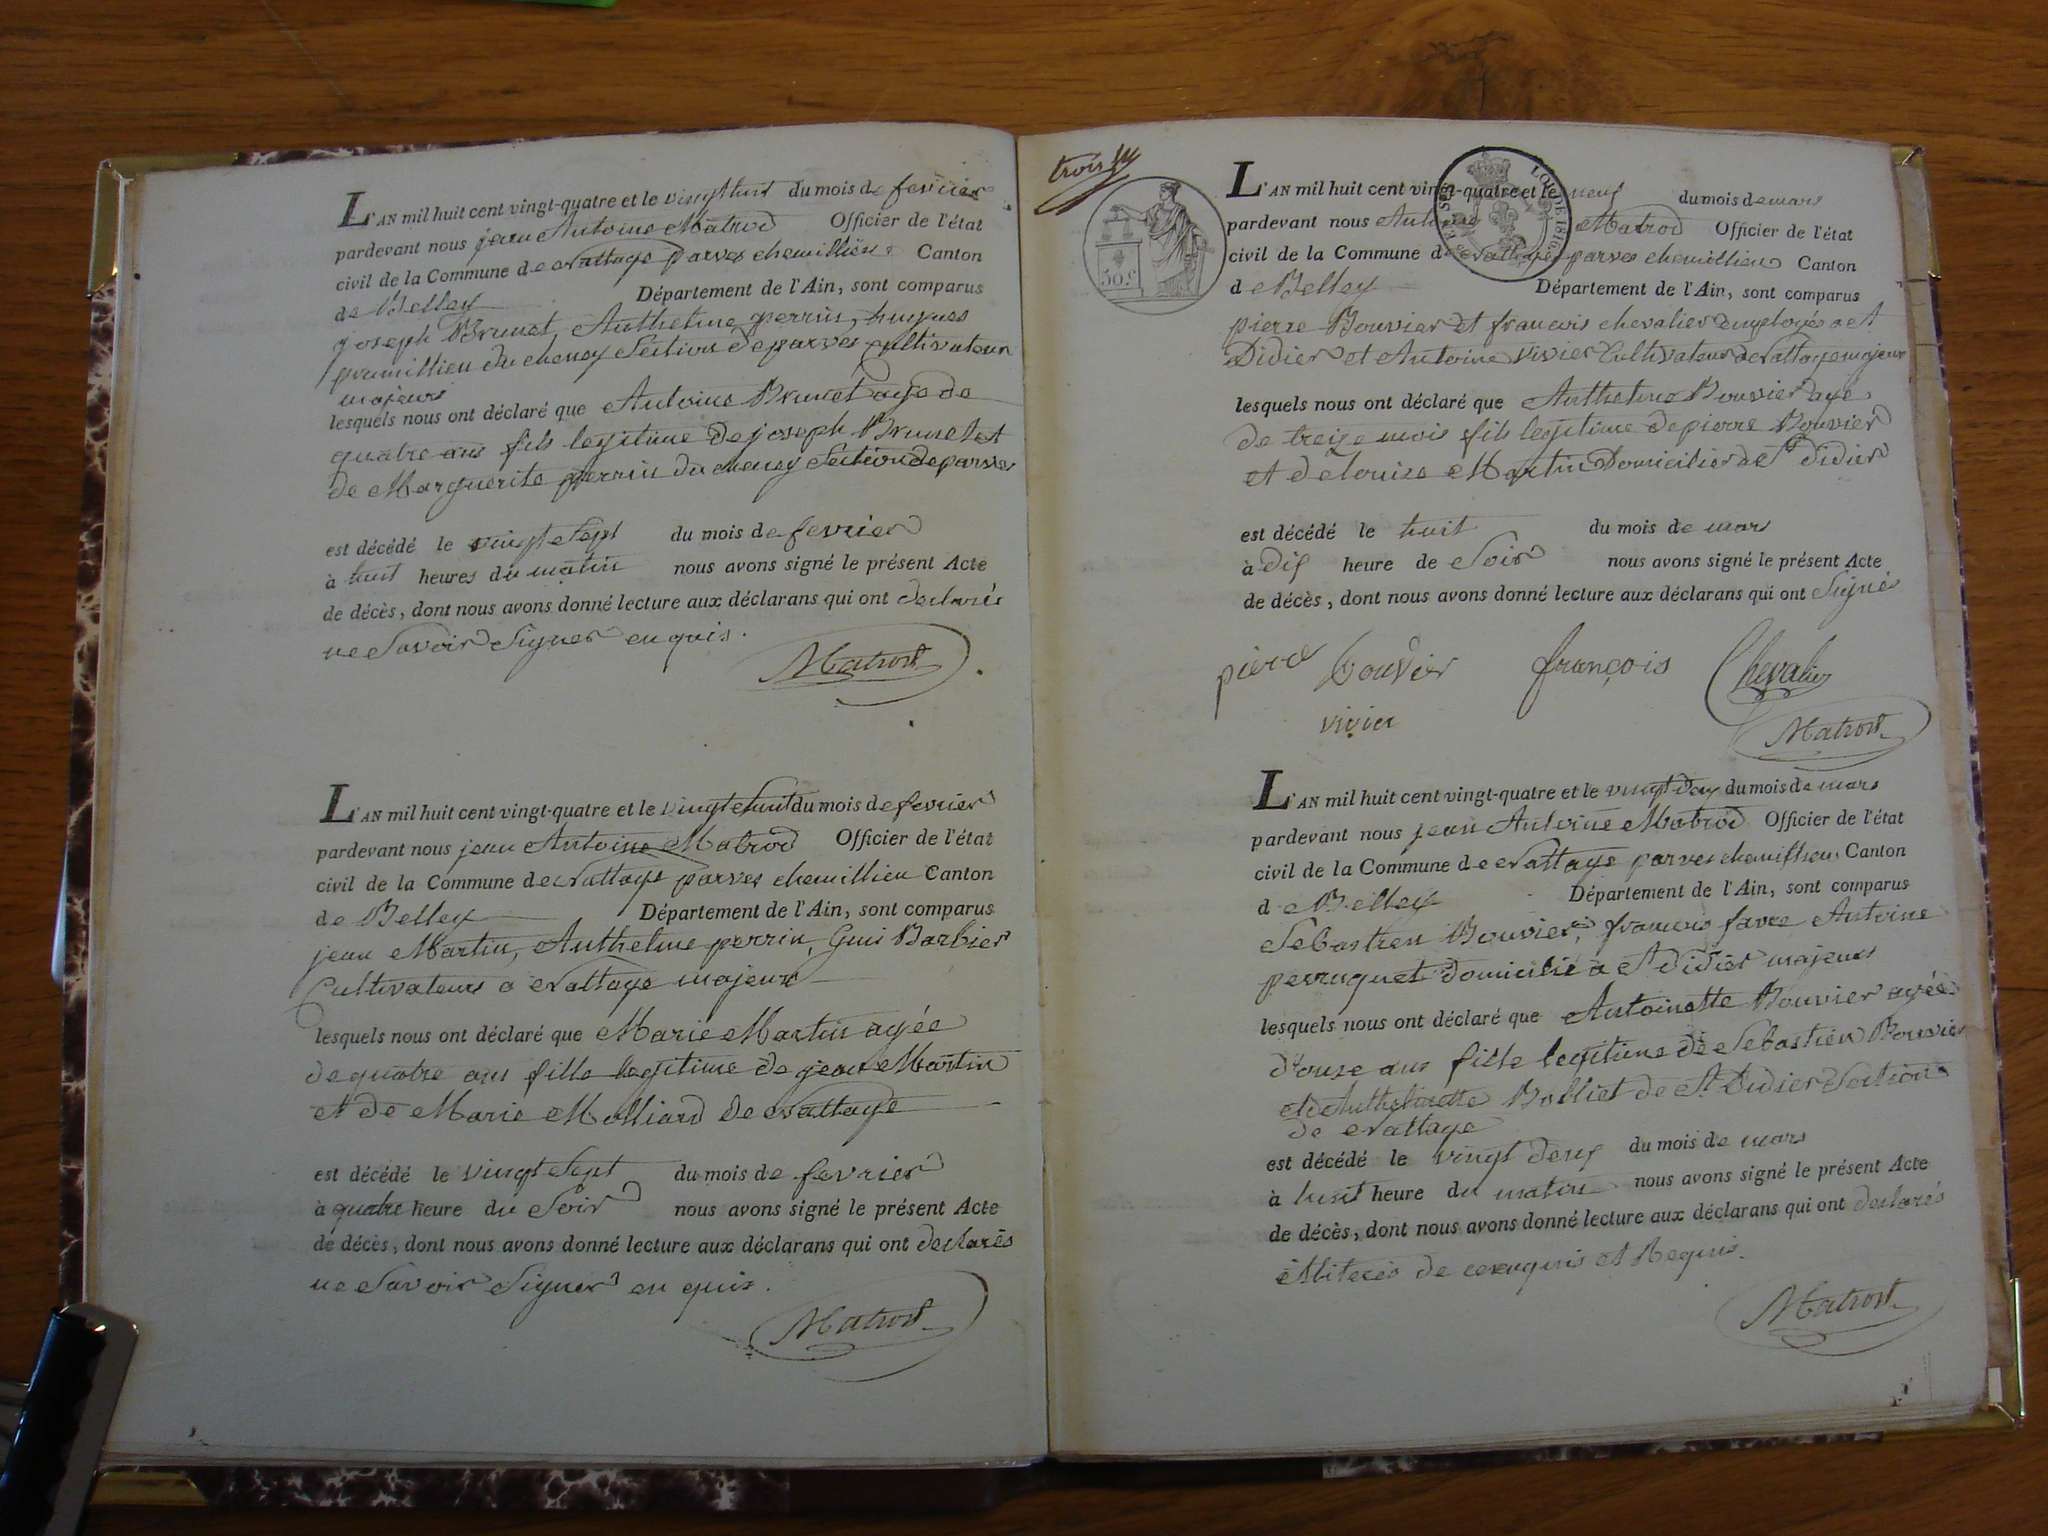 L'AN mil huit cent vingt-quatre et le vingt huit du mois de fevrier
pardevant nous jean Antoine Matrod Officier de l'état
civil de la Commune de Nattage parves chemillieu Canton
de Belley Département de l'Ain, sont comparus
joseph Brunet, Anthelme perrin, hugues
prumillieu du cheney Section de parves Cultivateurs
majeurs
lesquels nous ont déclaré que Antoine Brunet age de
quatre ans fils legitime de joseph Brunet et
de Marguerite perrin du cheney Section de parves
est décédé le vingt Sept du mois de fevrier
à huit heures du matin nous avons signé le présent Acte
de décès, dont nous avons donné lecture aux déclarans qui ont declarés
ne Savoir Signer en quis.
Matrod
L'AN mil huit cent vingt-quatre et le vingt huit du mois de fevrier
pardevant nous jean Antoine Matrod Officier de l'état
civil de la Commune de Nattage parves chemillieu Canton
de Belley Département de l'Ain, sont comparus
jean Martin, Anthelme perrin, Guis Barbier
Cultivateurs a Nattage majeurs
lesquels nous ont déclaré que Marie Martin agée
de quatre ans fille legitime de jean Martin
et de Marie Molliard de Nattage
est décédé le vingt Sept du mois de fevrier
à quatre heure du Soir nous avons signé le présent Acte
de décès, dont nous avons donné lecture aux déclarans qui ont declarés
ne Savoir Signer en quis.
Matrod
trois
50 c.
LOI DE 1816
L'AN mil huit cent vingt-quatre et le neuf du mois de mars
pardevant nous Antoine Matrod Officier de l'état
civil de la Commune de Nattage parves chemillieu Canton
d e Belley Département de l'Ain, sont comparus
pierre Bouvier et francois chevalier employés a St
Didier et Antoine Vivier Cultivateur a Nattage majeurs
lesquels nous ont déclaré que Anthelme Bouvier agé
de treize mois fils legitime de pierre Bouvier
et de louise Martin Domicilier a St didier
est décédé le huit du mois de mars
à dix heure de Soir nous avons signé le présent Acte
de décès, dont nous avons donné lecture aux déclarans qui ont Signés
pierre bouvier françois Chevalier
vivier
Matrod
L'AN mil huit cent vingt-quatre et le vingt deux du mois de mars
pardevant nous jean Antoine Matrod Officier de l'état
civil de la Commune de Nattage parves chemillieu Canton
d e Belley Département de l'Ain, sont comparus
Sebastien Bouvier, francois favre Antoine
perruquet domicilié a St didier majeurs
lesquels nous ont déclaré que Antoinette Bouvier agée
d'onze ans fille legitime de Sebastien Bouvier
et de Anthelmette Bolliet de St Didier Section
de Nattage
est décédé le vingt deux du mois de mars
à huit heure du matin nous avons signé le présent Acte
de décès, dont nous avons donné lecture aux déclarans qui ont declarés
illiterés de ce enquis et Requis.
Matrod